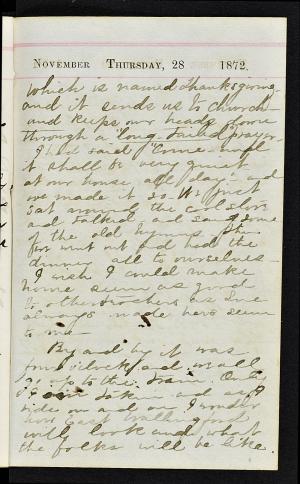 November Thursday, 28 1872.
which is named thanksgiving
and it sends us to Church
and keeps our heads down
through a long tailed prayer
I had said "Come and
it shall be very quiet
at our house all day" and
we made it so. We just
sat round the
and talked and sang some
of the old hymns
went out and had the
dinner all to ourselves
I wish I could make
home seem as good
to others as
always made hers seem
to me
By and by it was
four o'clock and we all
go up to the train.
and
ride on and on. I wonder
how East
will look and what
the folks will be like.